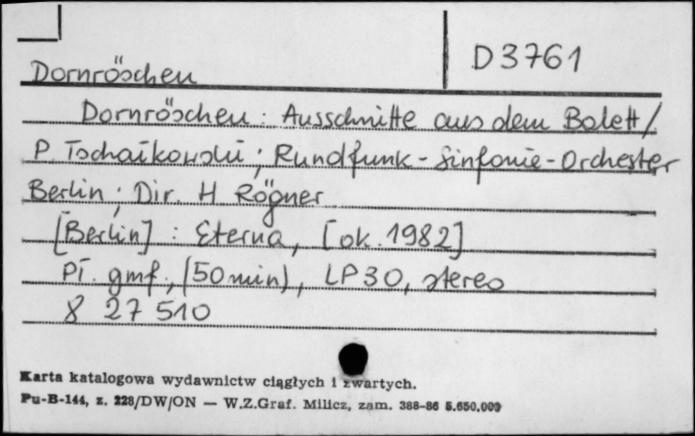 D 3761
Dornröschen
Dornröschen : Ausschnitte aus dem Balett /
P. Tschaikowski ; Rundfunk - Sinfonie - Orchester
Berlin ; Dir. H. Rögner
[Berlin] : Eterna, [ok. 1982]
Pł. gmf., (50 min), LP 30, stereo
8 27 510
Karta katalogowa wydawnictw ciągłych i zwartych.
Pu-B-144, z. 228/DW/ON — W.Z.Graf. Milicz, zam. 388-86 5.650.000